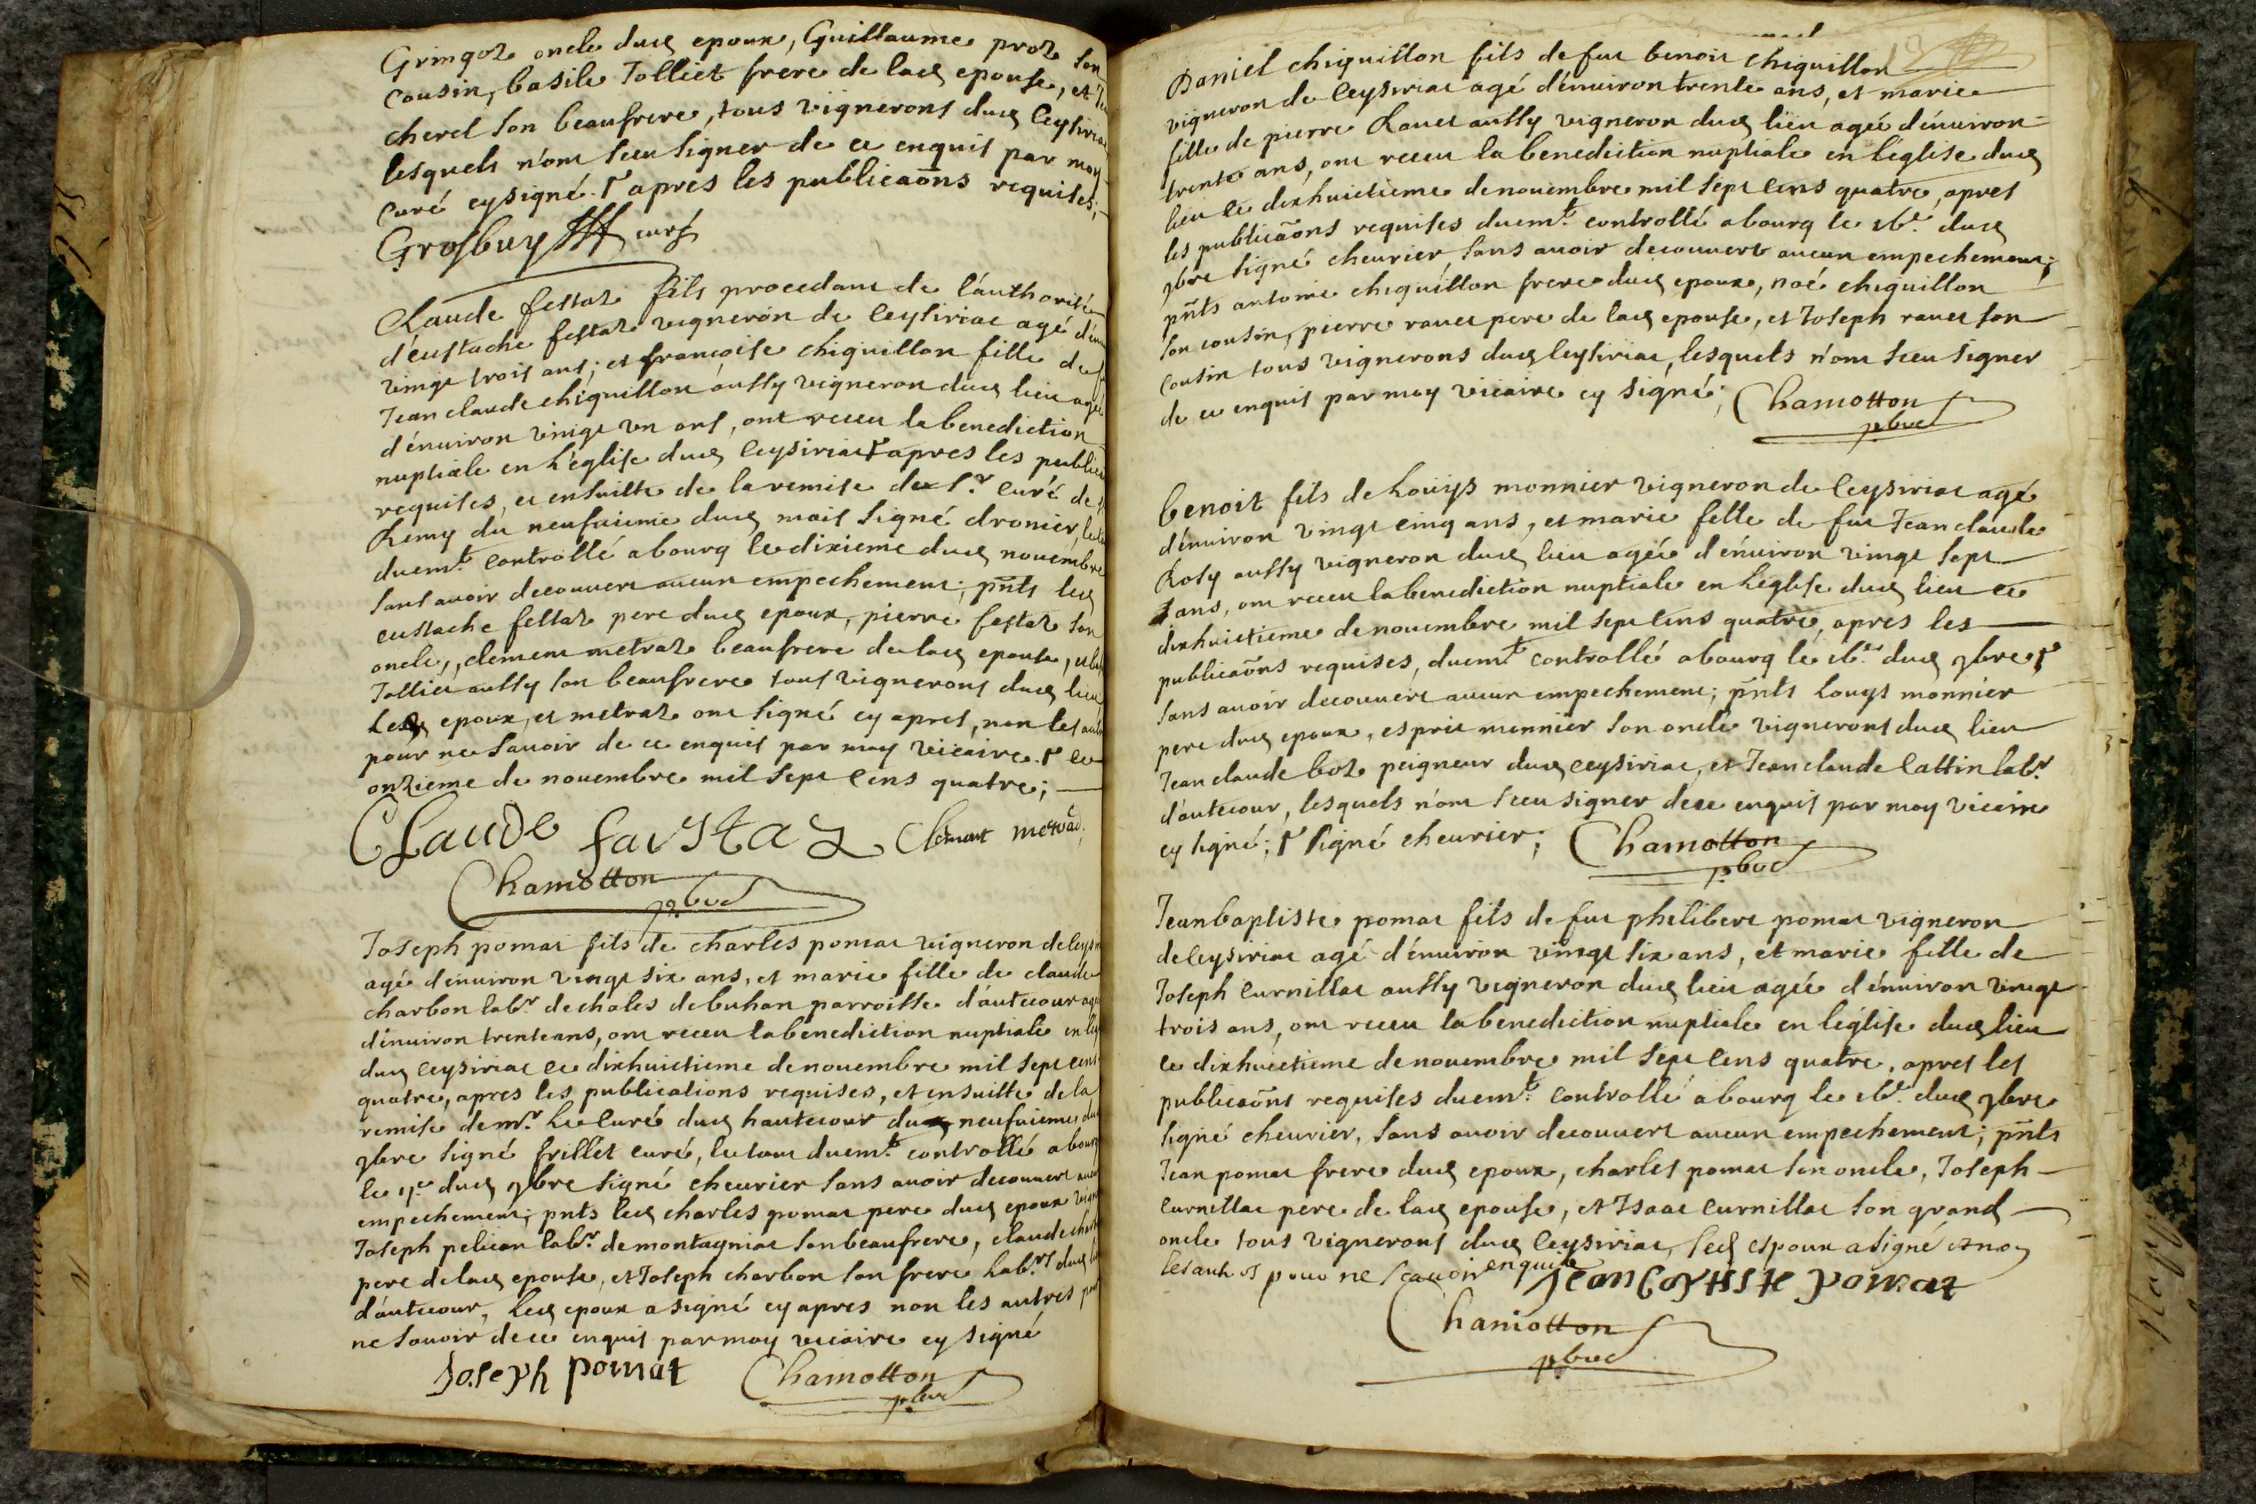 Gringoz oncle dud epoux, Guillaume proz son
cousin, basile Tolliet frere de lad epouse, et
cherel son beaufrere, tous vignerons dud Ceysiria
lesquels n'ont sceu signer de ce enquis par moy
curé cy signé. Γ apres les publicaōns requises;
Grosbuy curé
Claude festaz fils procedant de l'authorité
d'eustache festaz vigneron de Ceysiriat agé d'en
vingt trois ans; et francoise chiquillon fille de f
Jean claude chiquillon aussy vigneron dud lieu agée
d'enuiron vingt vn ans, ont receu la benediction
nuptiale en L'eglise dud Ceysiriat Γ apres les public
requises, et ensuitte de la remise du Sr. Curé de
Remy du neufuieme dud mois signé dronier, le t
duemt. controllé a bourg le dixieme dud nouembre
sans auoir decouuert aucun empechement; pn̄ts led
eustache festaz pere dud epoux, pierre festaz son
oncle, clement metraz beaufrere de lad epouse, et b
Tolliet aussy son beaufrere tous vignerons dud lieu
Led epoux, et metraz ont signé cy apres, non les aut
pour ne sauoir de ce enquis par moy vicaire. Γ le
onzieme de nouembre mil sept cens quatre;
Claude faustaz Clemant metraz
Chamotton
pbre
Joseph pomat fils de charles pomat vigneron de Ceys
agé d'enuiron vingt six ans, et marie fille de claude
charbon labr. de chales de buhan parroisse d'autecour ag
d'enuiron trente ans, ont receu la benediction nuptiale en leg
dud Ceysiriat le dixhuictieme de nouembre mil sept cens
quatre, apres les publications requises, et ensuitte de la
remise de mr. Le Curé dud hautecour du neufuieme du
9bre signé frillet curé, le tout duemt. controllé a bourg
le 17e dud 9bre signé cheurier sans auoir decouuert aucu
empechement; pnts led charles pomat pere dud epoux vign
Joseph pelican labr. de montagniat son beaufrere, claude charb
pere de lad epouse, et Joseph charbon son frere Labrs. dud
d'autecour, Led epoux a signé cy apres non les autres p
ne sauoir de ce enquis par moy vicaire cy signé
Joseph pomat Chamotton
pbre
Daniel chiquillon fils de fut benoit chiquillon
vigneron de Ceysiriat agé d'enuiron trente ans, et marie
fille de pierre Rauet aussy vigneron dud lieu agée d'enuiron
trente ans, ont receu la benediction nuptiale en l'eglise dud
lieu le dixhuictieme de nouembre mil sept cens quatre, apres
les publicaōns requises duemt. controllé a bourg le 16e. dud
9bre signé cheurier, sans auoir decouuert aucun empechement;
pn̄ts antoine chiquillon frere dud epoux, noé chiquillon
son cousin, pierre rauet pere de lad epouse, et Joseph rauet son
cousin tous vignerons dud Ceysiriat, lesquels n'ont sceu signer
de ce enquis par moy vicaire cy signé; Chamotton
pbre
benoit fils de Louys monnier vigneron de Ceysiriat agé
d'enuiron vingt cinq ans, et marie fille de fut Jean claude
Rosy aussy vigneron dud lieu agée d'enuiron vingt sept
ans, ont receu la benediction nuptiale en L'eglise dud lieu le
dixhuictieme de nouembre mil sept cens quatre, apres les
publicaōns requises, duemt. controllé a bourg le 16e. dud 9bre Γ
sans auoir decouuert aucun empechement; pn̄ts Louys monnier
pere dud epoux, esprit monnier son oncle vignerons dud lieu
Jean claude boz peigneur dud ceysiriat, et Jean claude Cattin labr.
d'autecour, lesquels n'ont sceu signer de ce enquis par moy vicaire
cy signé; Γ signé cheurier; Chamotton
pbre
Jean baptiste pomat fils de fut philibert pomat vigneron
de Ceysiriat agé d'enuiron vingt six ans, et marie fille de
Joseph Curnillat aussy vigneron dud lieu agée d'enuiron vingt
trois ans, ont receu la benediction nuptiale en l'eglise dud lieu
le dixhuictieme de nouembre mil sept cens quatre, apres les
publicaōns requises duemt. controllé a bourg le 16e. dud 9bre
signé cheurier, sans auoir decouuert aucun empechement; pn̄ts
Jean pomat frere dud epoux, charles pomat son oncle, Joseph
Curnillat pere de lad epouse, et Isaac Curnillat son grand
oncle tous vignerons dud Ceysiriat, led espoux a signé et non
les autres pour ne scauoir enquis
Jean baptiste pomat
Chamotton
pbre